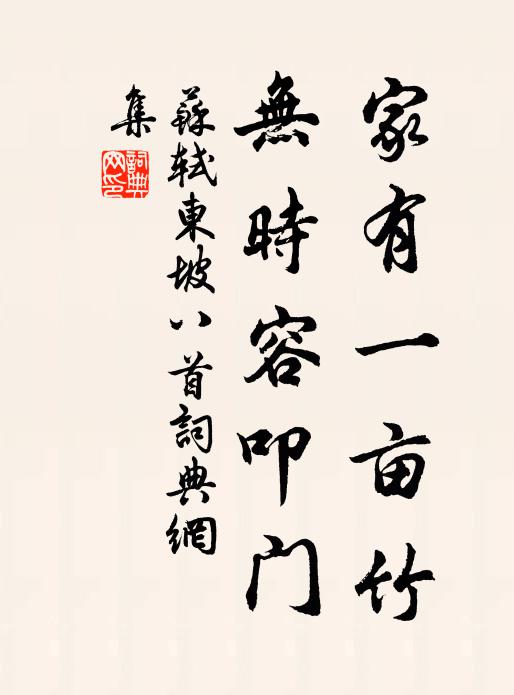 家有一亩竹
無時容叩门
蘇軾東坡八首詞典網
集
詞典
网印